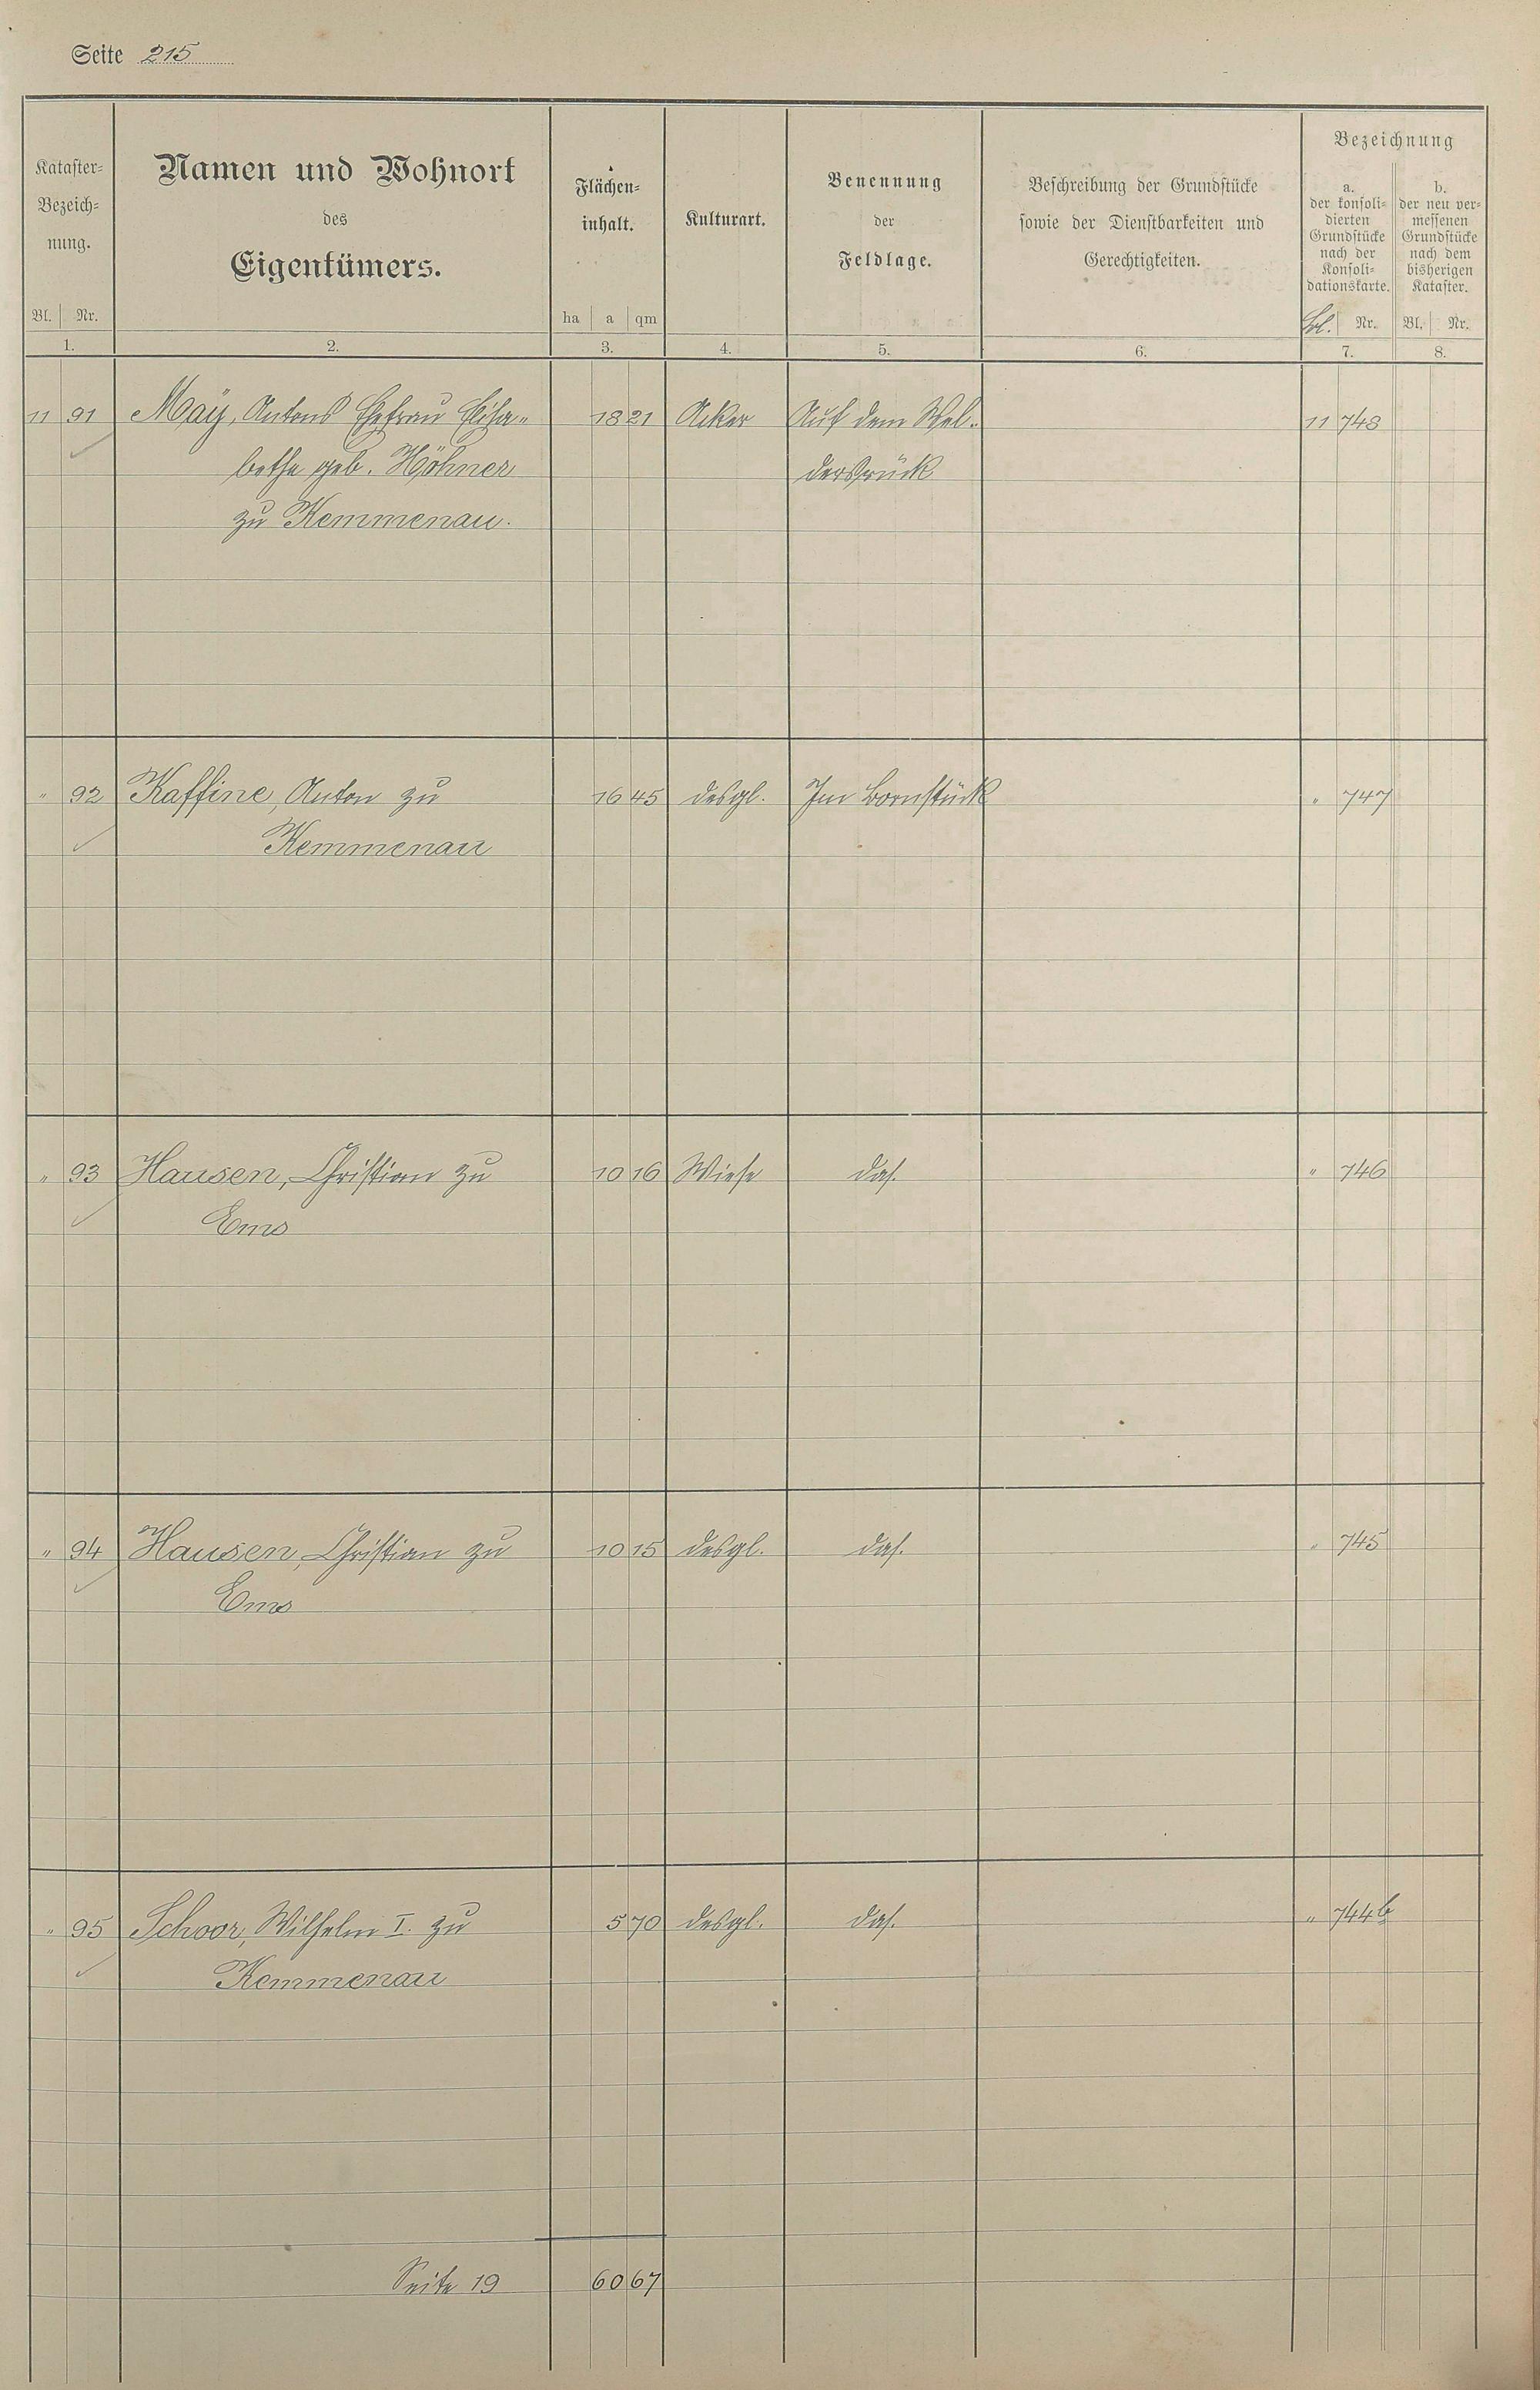 Seite 215
Kataster-
Bezeich-
nung.
Bl. Nr.
1.
Namen und Wohnort
des
Eigentümers.
2.
Flächen-
inhalt.
ha a qm
3.
Kulturart.
4.
Benennung
der
Feldlage.
5.
Beschreibung der Grundstücke
sowie der Dienstbarkeiten und
Gerechtigkeiten.
6.
Bezeichnung
a.
der konsoli-
dierten
Grundstücke
nach der
Konsoli-
dationskarte.
Bl. Nr.
7.
b.
der neu ver-
messenen
Grundstücke
nach dem
bisherigen
Kataster.
Bl. Nr.
8.
11 91 Maÿ, Antons Ehefrau Elisa- 18 21 Acker Auf dem 11 748
bethe geb. Höhner
zu Kemmenau.
" 92 Kaffine, Anton zu 16 45 desgl. Im Bornstück " 747
Kemmenau
" 93 Hausen, Christian zu 10 16 Wiese das. " 746
Ems
" 94 Hausen, Christian zu 10 15 desgl. das. " 745
Ems
" 95 Schoor, Wilhelm I. zu 5 70 desgl. das. " 744b
Kemmenau
Seite 19 60 67